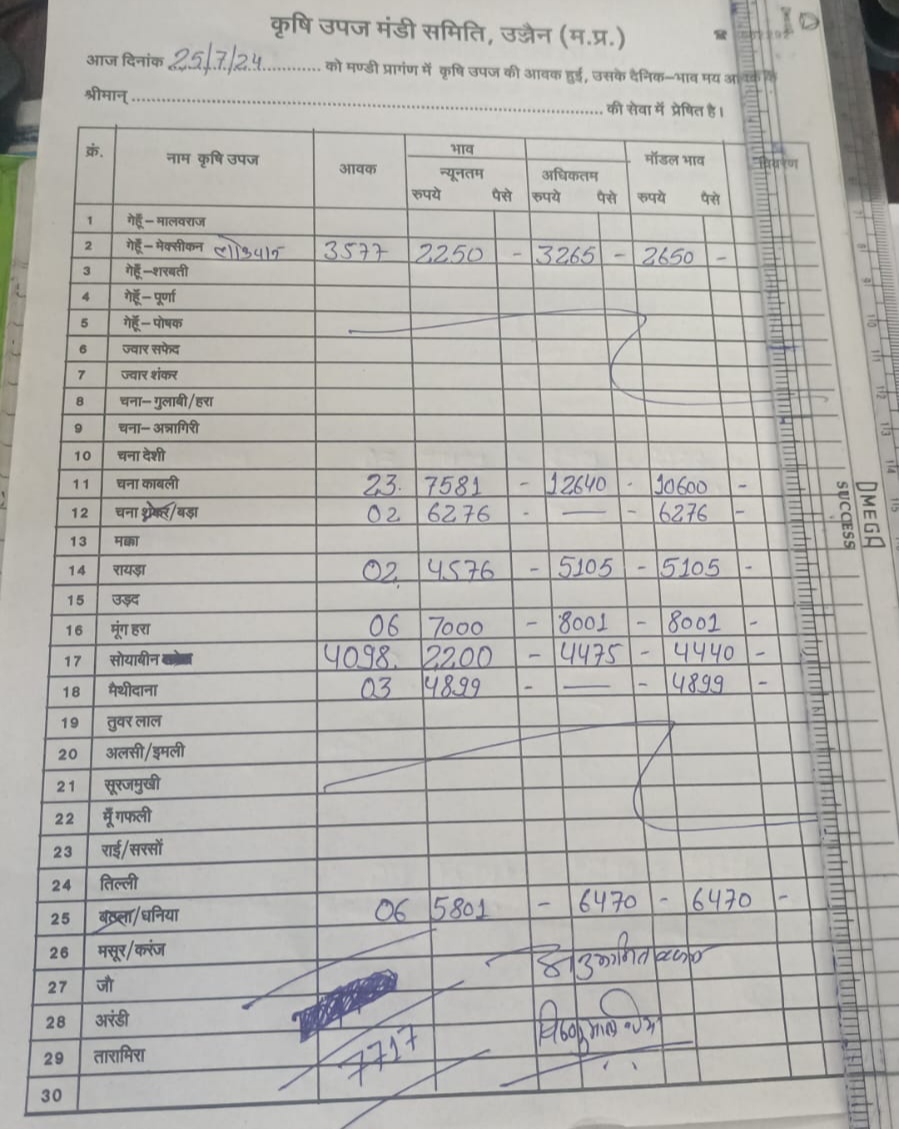 कृषि उपज मंडी समिति, उज्जैन (म.प्र.)
आज दिनांक 25/7/24 को मण्डी प्रागंण में कृषि उपज की आवक हुई, उसके दैनिक-भाव मय
श्रीमान् की सेवा में प्रेषित है।
क्रं. नाम कृषि उपज आवक भाव मॉडल भाव विवरण
न्यूनतम अधिकतम
रुपये पैसे रुपये पैसे रुपये पैसे
1 गेहूँ-मालवराज
2 गेहूँ-मेक्सीकन लोकवान 3577 2250 - 3265 - 2650 -
3 गेहूँ-शरबती
4 गेहूँ-पूर्णा
5 गेहूँ-पोषक
6 ज्वार सफेद
7 ज्वार शंकर
8 चना-गुलाबी/हरा
9 चना-अन्नागिरी
10 चना देशी
11 चना काबली 23. 7581 - 12640 - 10600 -
12 चना शंकर/बड़ा 02 6276 - — - 6276 -
13 मक्का
14 रायड़ा 02 4576 - 5105 - 5105 -
15 उड़द
16 मूंग हरा 06 7000 - 8001 - 8001 -
17 सोयाबीन 4098. 2200 - 4475 - 4440 -
18 मैथीदाना 03 4899 - — - 4899 -
19 तुवर लाल
20 अलसी/इमली
21 सूरजमुखी
22 मूँगफली
23 राई/सरसों
24 तिल्ली
25 बटला/धनिया 06 5801 - 6470 - 6470 -
26 मसूर/करंज
27 जौ
28 अरंडी
29 तारामिरा 7717
30
OMEGA
SUCCESS